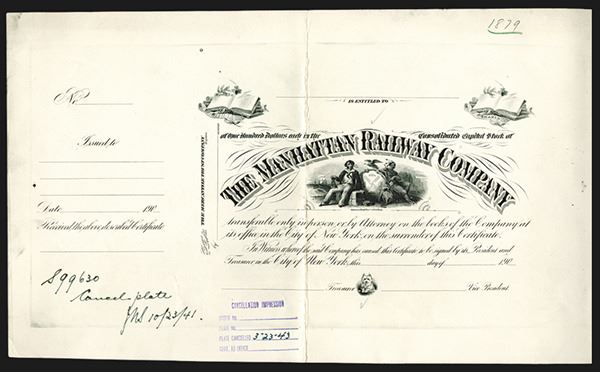 1879
No.
Issued to
Date 190
Received the above described Certificate
S99630
Cancel plate
JNS 10/23/41.
THE MERCANTILE TRUST COMPANY
By
IS ENTITLED TO
of One Hundred Dollars each in the Consolidated Capital Stock of
THE MANHATTAN RAILWAY COMPANY
transferable only in person or by Attorney on the books of the Company at
its office in the City of New York, on the surrender of this Certificate.
In Witness whereof the said Company has caused this Certificate to be signed by its President and
Treasurer in the City of New York, this day of 190
Treasurer Vice President
CANCELLATION IMPRESSION
ORDER No.
PLATE CANCELLED 3-23-43